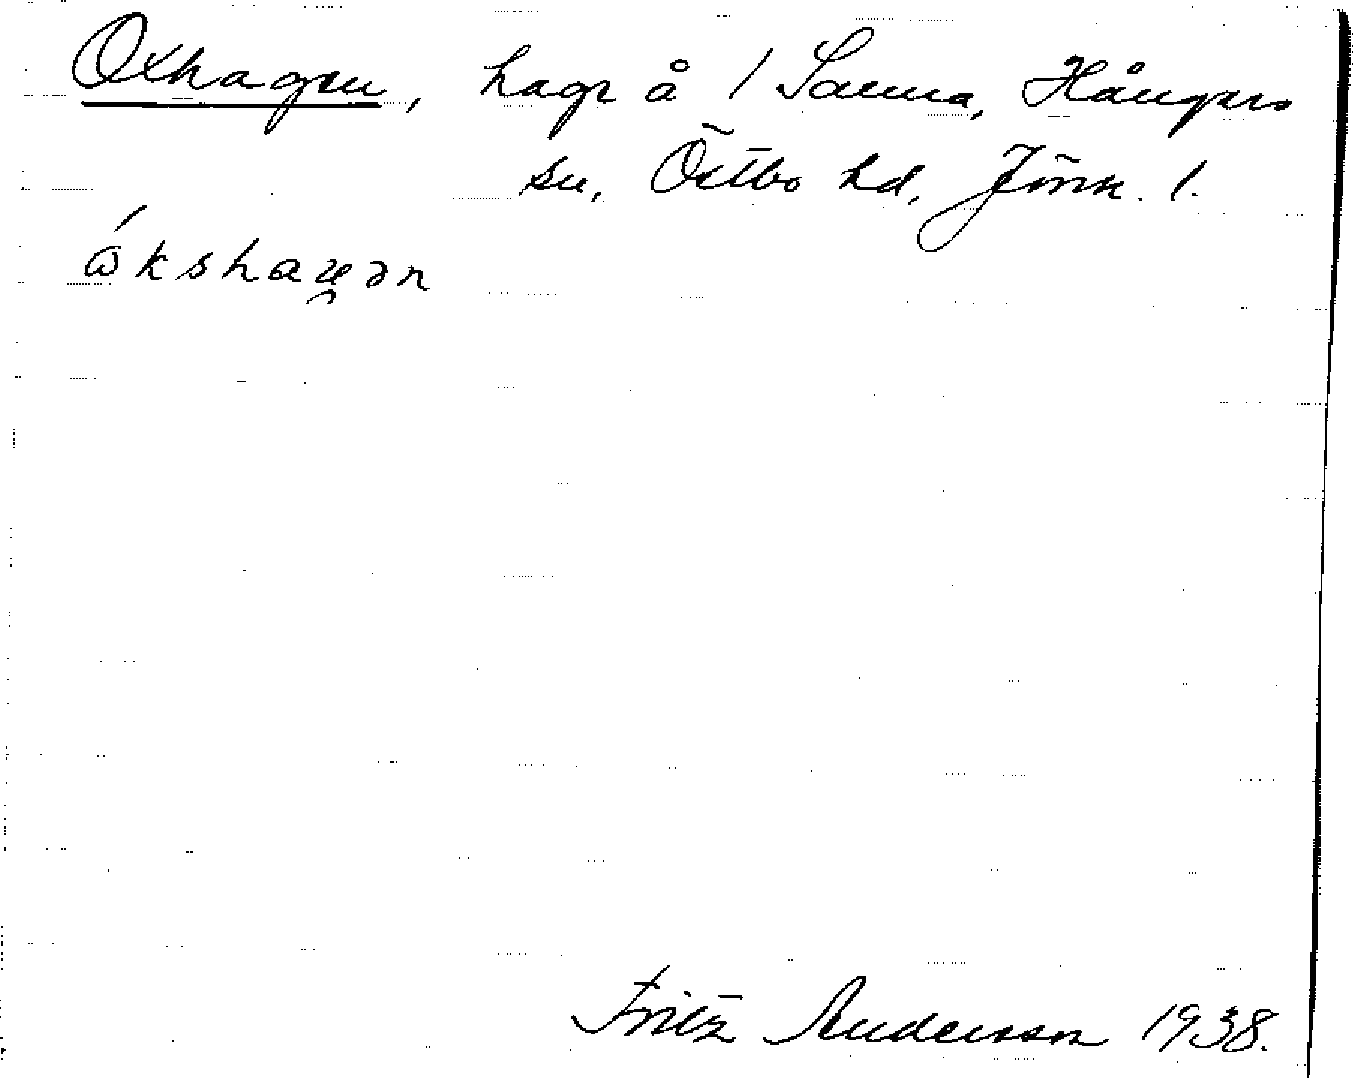 Oxhagen, hage å / Sanna, Hångers
sn, Östbo hd, Jönk. l.
ókshaɣən
Fritz Andersson 1938.